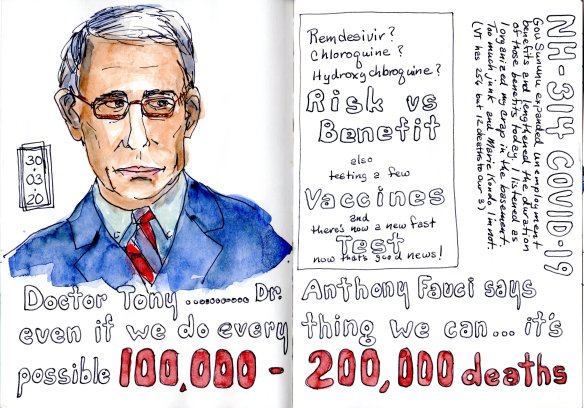 30
03
20
Doctor Tony .......... Dr.
even if we do every
possible 100,000 -
Remdesivir?
Chloroquine?
Hydroxychloroquine?
Risk vs
Benefit
also
testing a few
Vaccines
and
there's now a new fast
Test
now that's good news!
Anthony Fauci says
thing we can... it's
200,000 deaths
NH-314 COVID-19
Gov Sununu expanded unemployment
benefits and lengthened the duration
of those benefits today. I listened as
I organized my crap in the basement.
Too much junk and Marie Kondo I'm not.
(VT has 256 but 12 deaths to our 3)